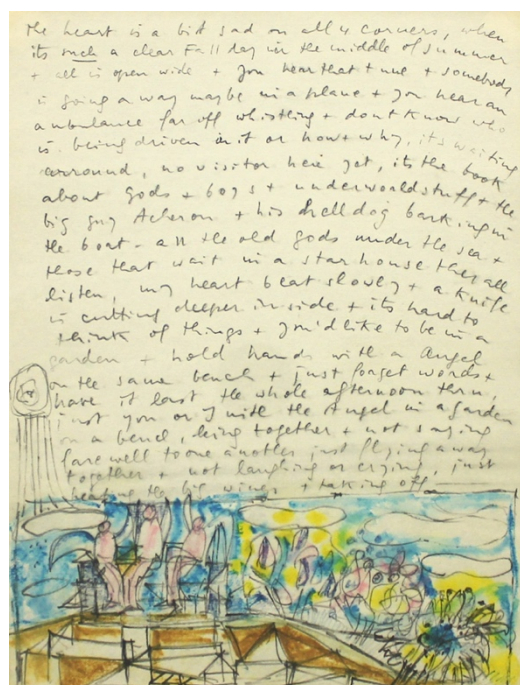 the heart is a bit sad on all 4 corners, when
its such a clear Fall day in the middle of summer
+ all is open wide + you hear that tune + somebody
is going away maybe in a plane + you hear an
ambulance far off whistling + dont know who
is being driven in it or how + why, its waiting
arround, no visitor here yet, its the book
about gods + boys + underworldstuff + the
big guy Acheron + his helldog barking in
the boat - all the old gods under the sea +
those that wait in a star house they all
listen, my heart beat slowly + a knife
is cutting deeper inside + its hard to
think of things + you'd like to be in a
garden + hold hands with a Angel
on the same bench + just forget words +
have it last the whole afternoon thru,
just you or I with the Angel in a garden
on a bench, being together + not saying
farewell to one another just flying away
together + not laughing or crying, just
beating the big wings + taking off